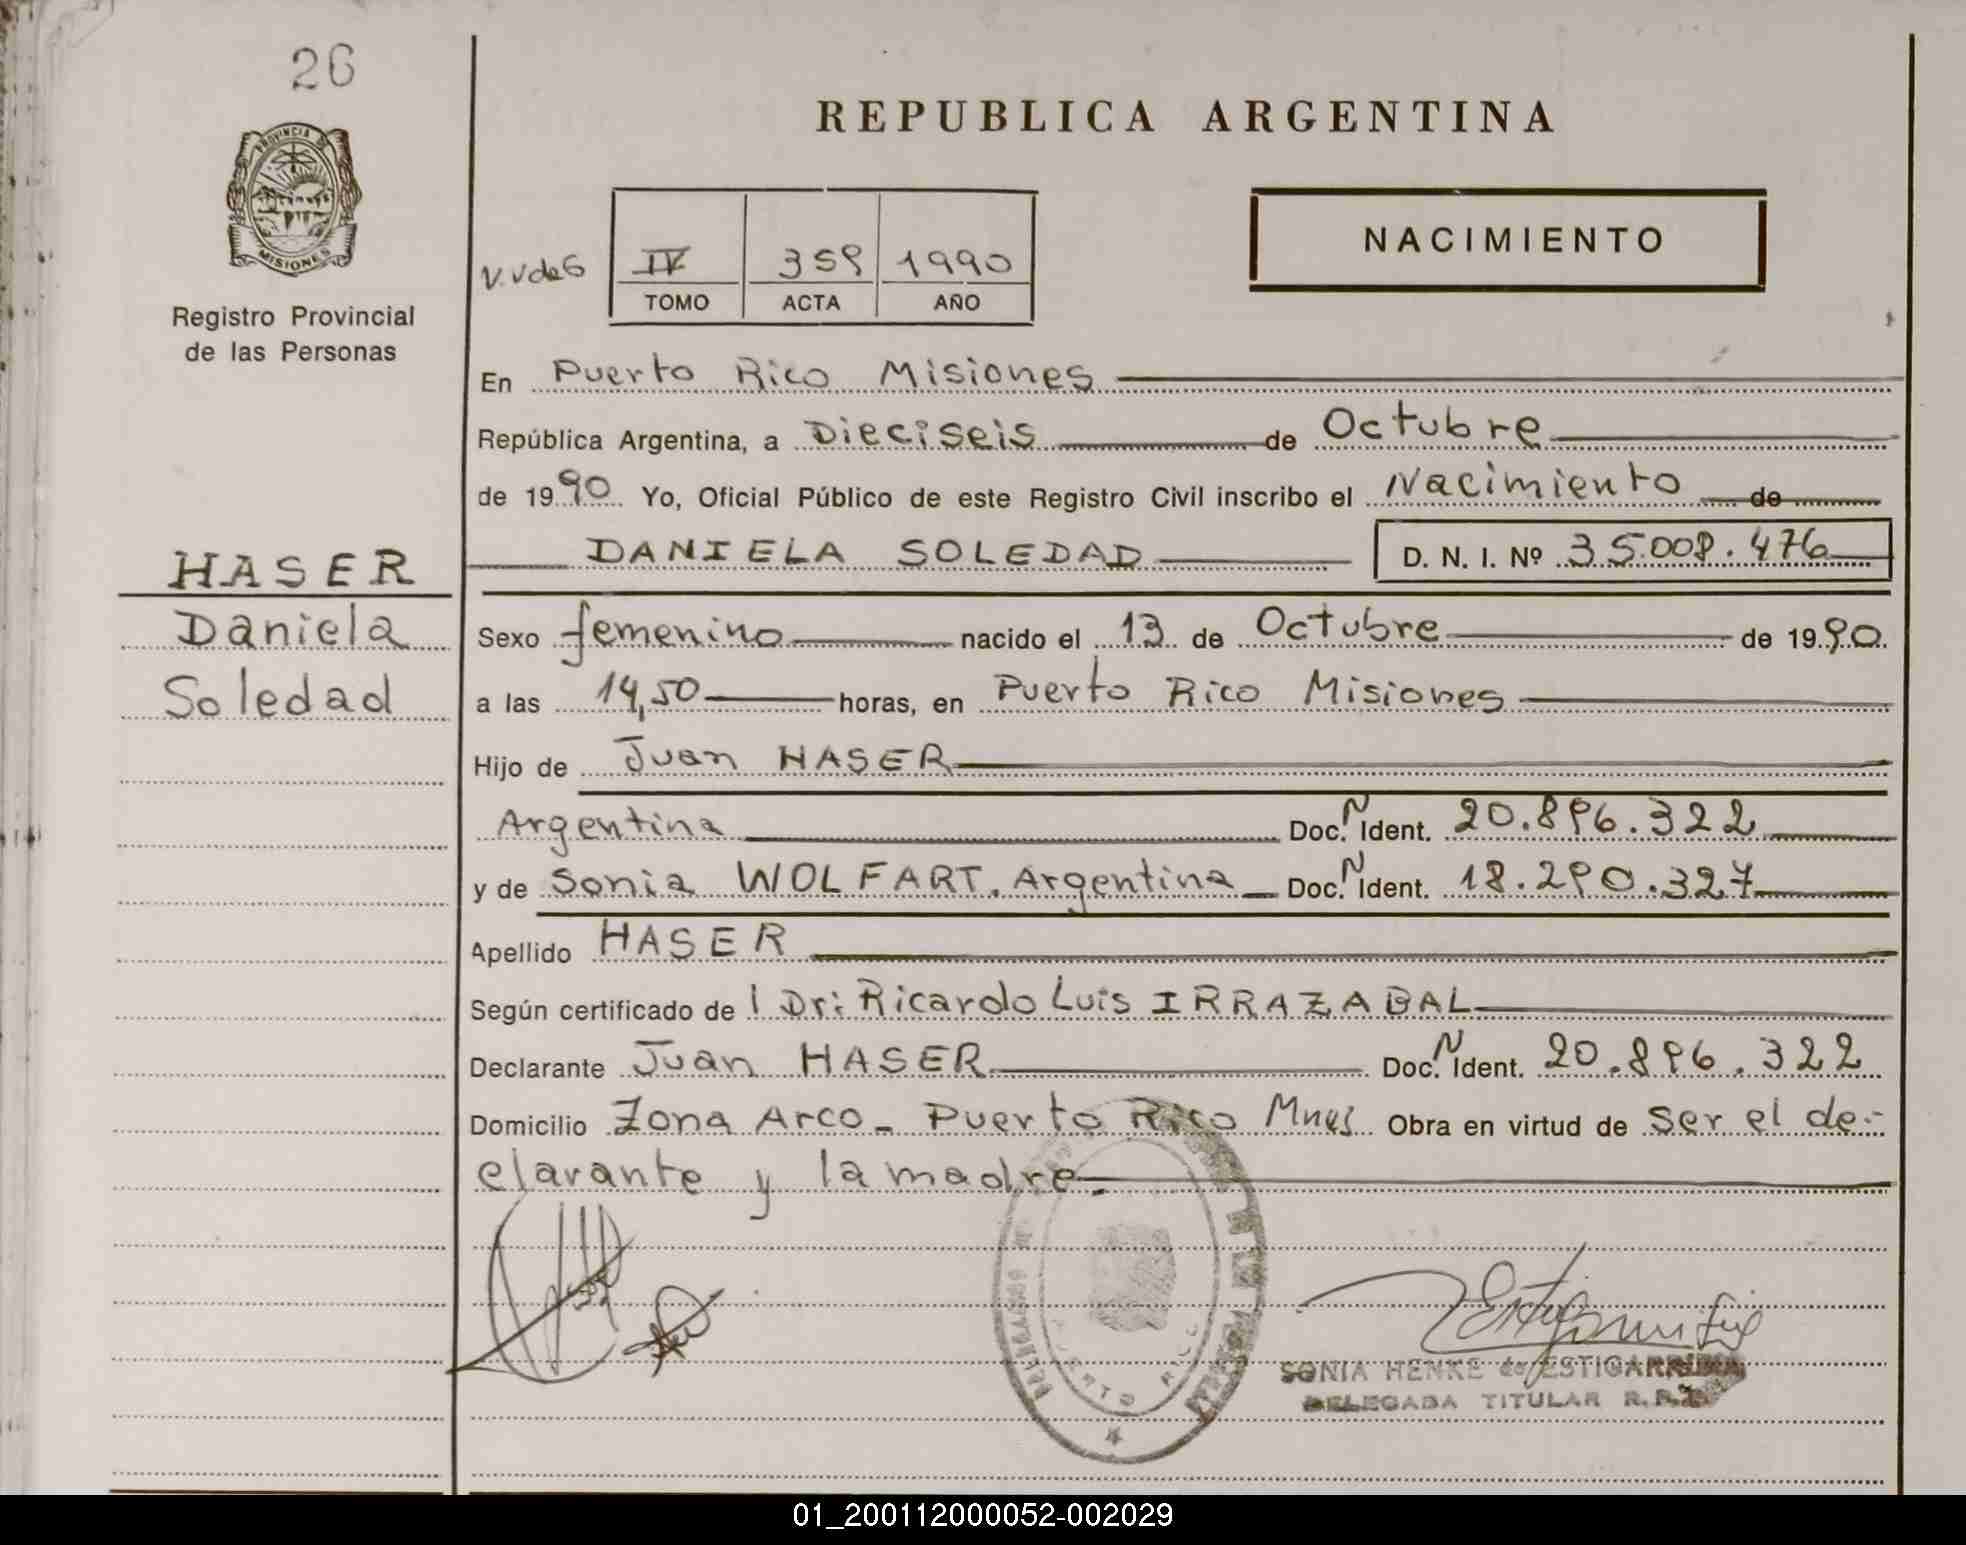 26
PROVINCIA DE
MISIONES
Registro Provincial
de las Personas
HASER
Daniela
Soledad
REPUBLICA ARGENTINA
V.V de G
IV 359 1990
TOMO ACTA AÑO
NACIMIENTO
En Puerto Rico Misiones
República Argentina, a Dieciseis de Octubre
de 1990 Yo, Oficial Público de este Registro Civil inscribo el Nacimiento de
DANIELA SOLEDAD D. N. I. Nº 35.008.476
Sexo femenino nacido el 13 de Octubre de 1990
a las 14,50 horas, en Puerto Rico Misiones
Hijo de Juan HASER
Argentina Doc. N Ident. 20.896.322
y de Sonia WOLFART. Argentina Doc. N Ident. 18.290.327
Apellido HASER
Según certificado de l Dr: Ricardo Luis IRRAZABAL
Declarante Juan HASER Doc. N Ident. 20.896.322
Domicilio Zona Arco - Puerto Rico Mnes Obra en virtud de ser el de-
clarante y la madre.
PUERTO RICO
SONIA HENKE de ESTIGARRIBIA
DELEGADA TITULAR R.P.P.
01_200112000052-002029